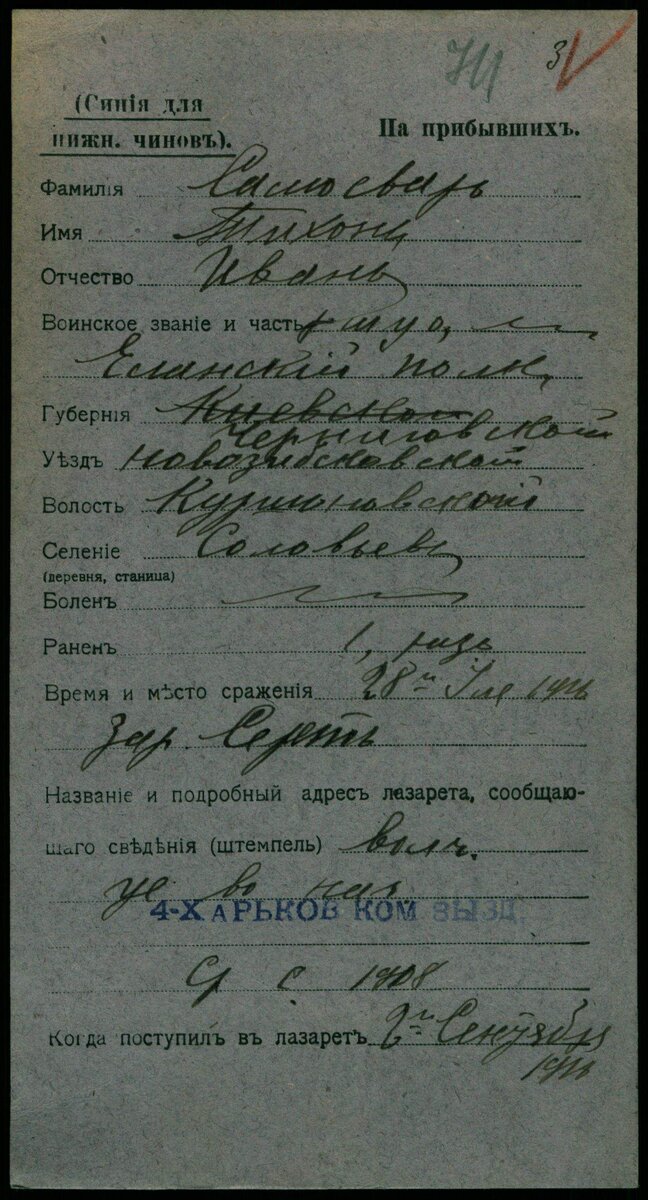 3
(Синія для
нижн. чиновъ).
На прибывшихъ.
Фамилія Самосваръ
Имя Тихонъ
Отчество Иванъ
Воинское званіе и часть
Еланскій полк.
Губернія Кіевской
Черниговской
Уѣздъ новозибковской
Волость
Селеніе Соловьевъ
(деревня, станица)
Боленъ
Раненъ 1, разъ
Время и мѣсто сраженія 28го 1916
Названіе и подробный адресъ лазарета, сообщаю-
щаго свѣдѣнія (штемпель)
4-ХАРЬКОВ КОМ ЗЫЗД.
с 1908
Когда поступилъ въ лазаретъ 2го Сентября
1916